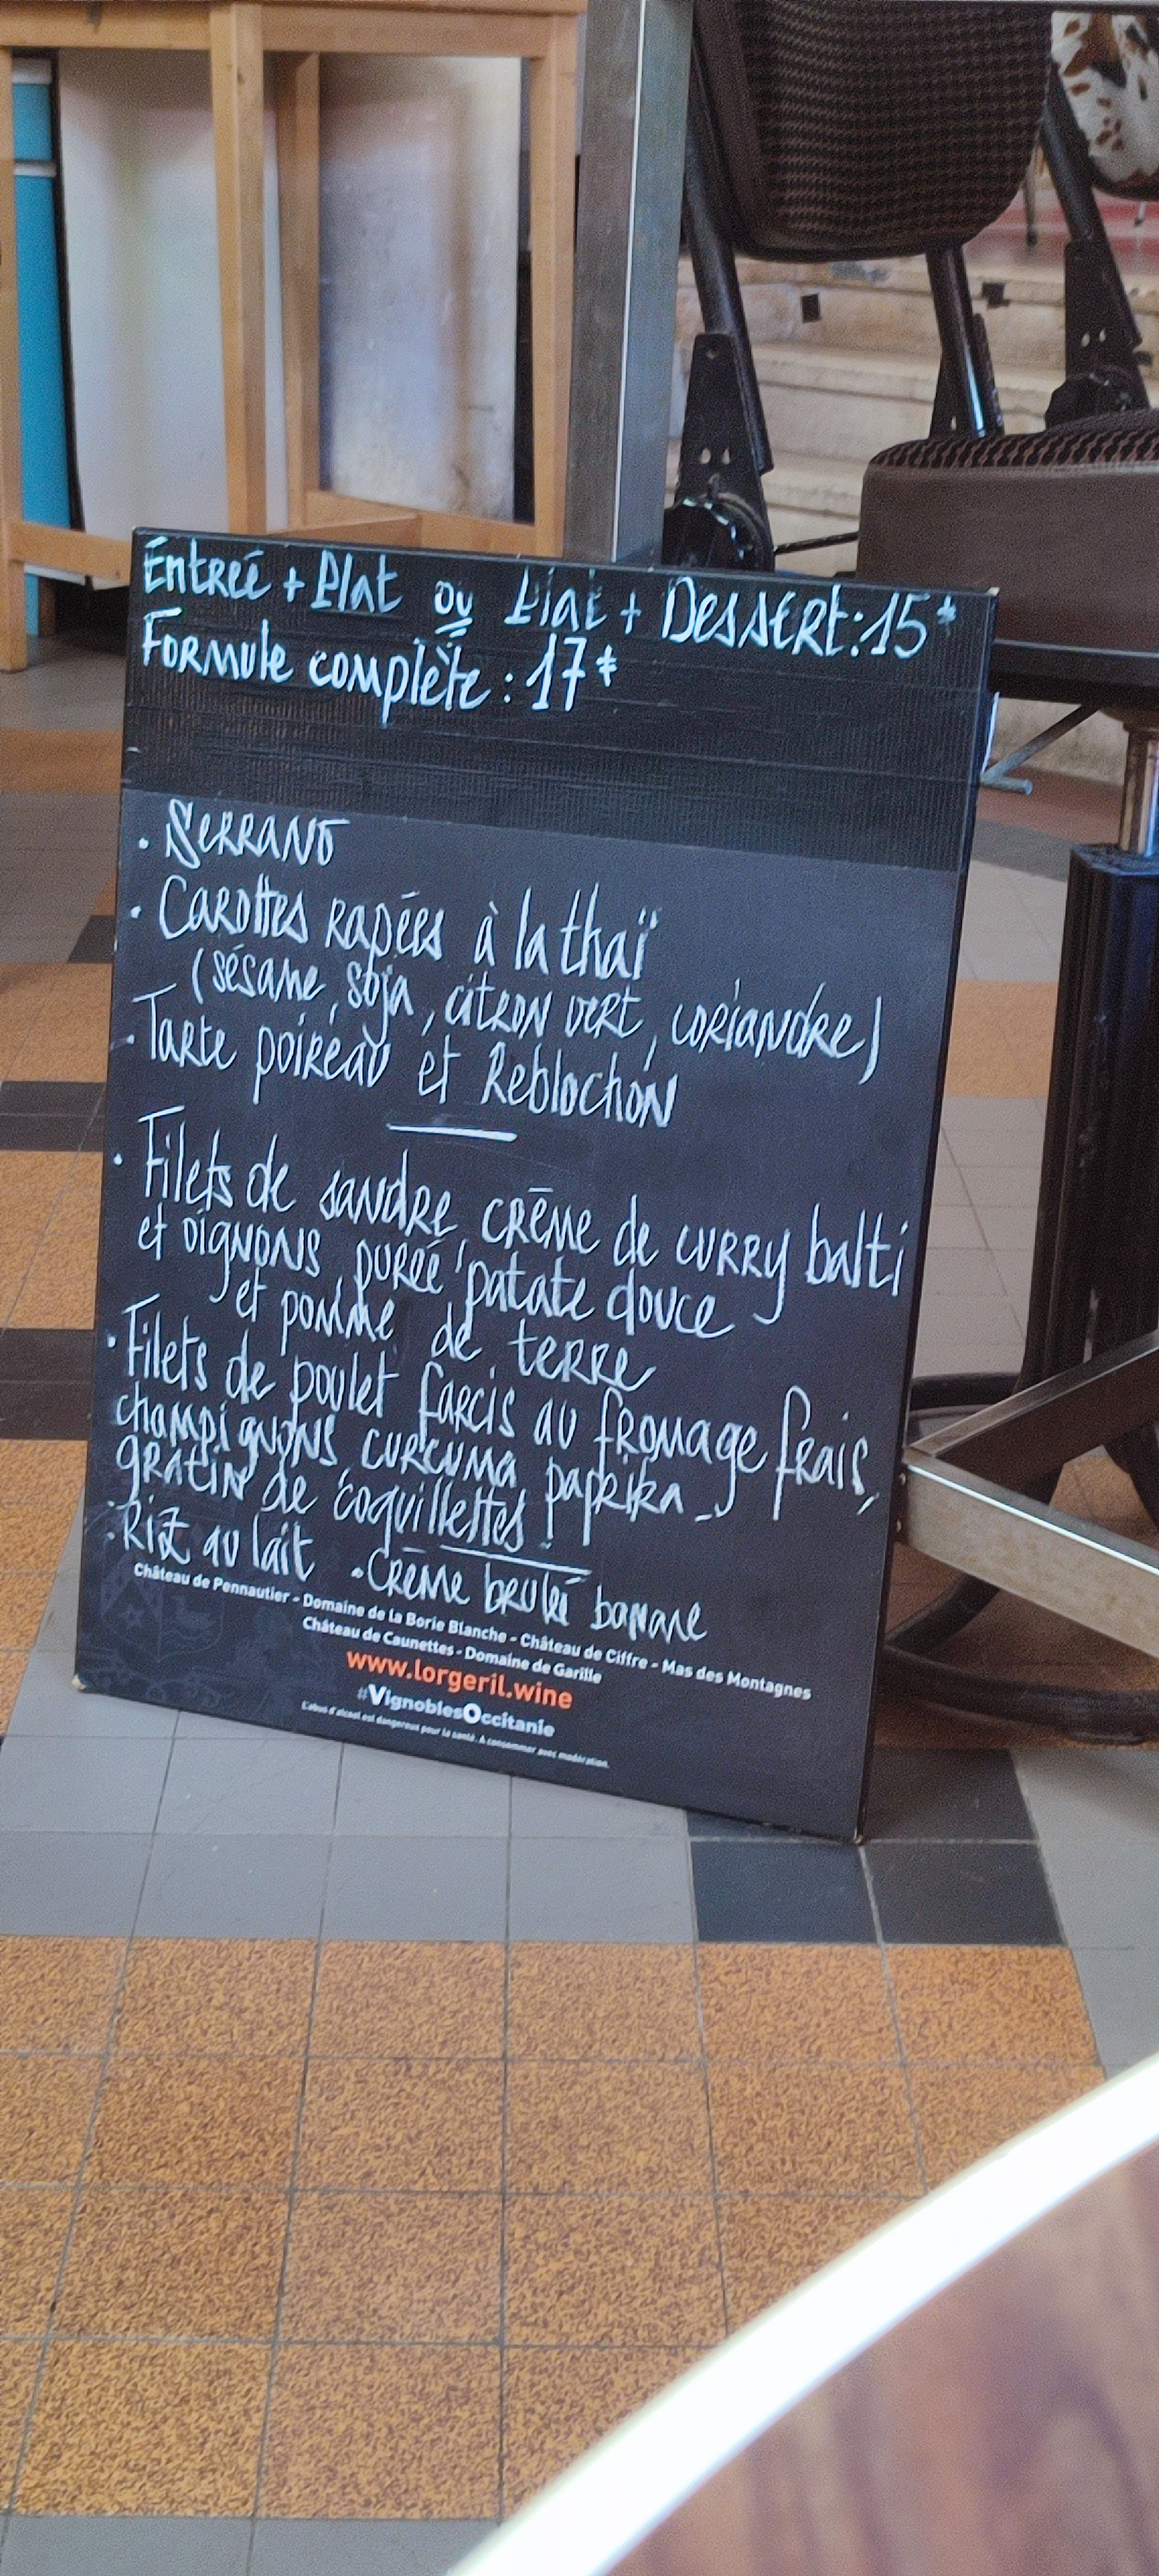 Entreé + Plat ou Plat + Dessert : 15€
Formule complète : 17€
• Serrano
• Carottes rapées à la thaï
(sésame, soja, citron vert, coriandre)
• Tarte poireau et Reblochon
• Filets de sandre, crème de curry balti
et oignons, pureé patate douce
et pomme de terre
• Filets de poulet farcis au fromage frais,
champignons, curcuma, paprika -
gratin de coquillettes !
• Riz au lait • Crème brulé banane
Château de Pennautier - Domaine de la Borie Blanche - Château de Ciffre - Mas des Montagnes
Château de Caunettes - Domaine de Garille
www.lorgeril.wine
#VignoblesOccitanie
L'abus d'alcool est dangereux pour la santé. A consommer avec modération.